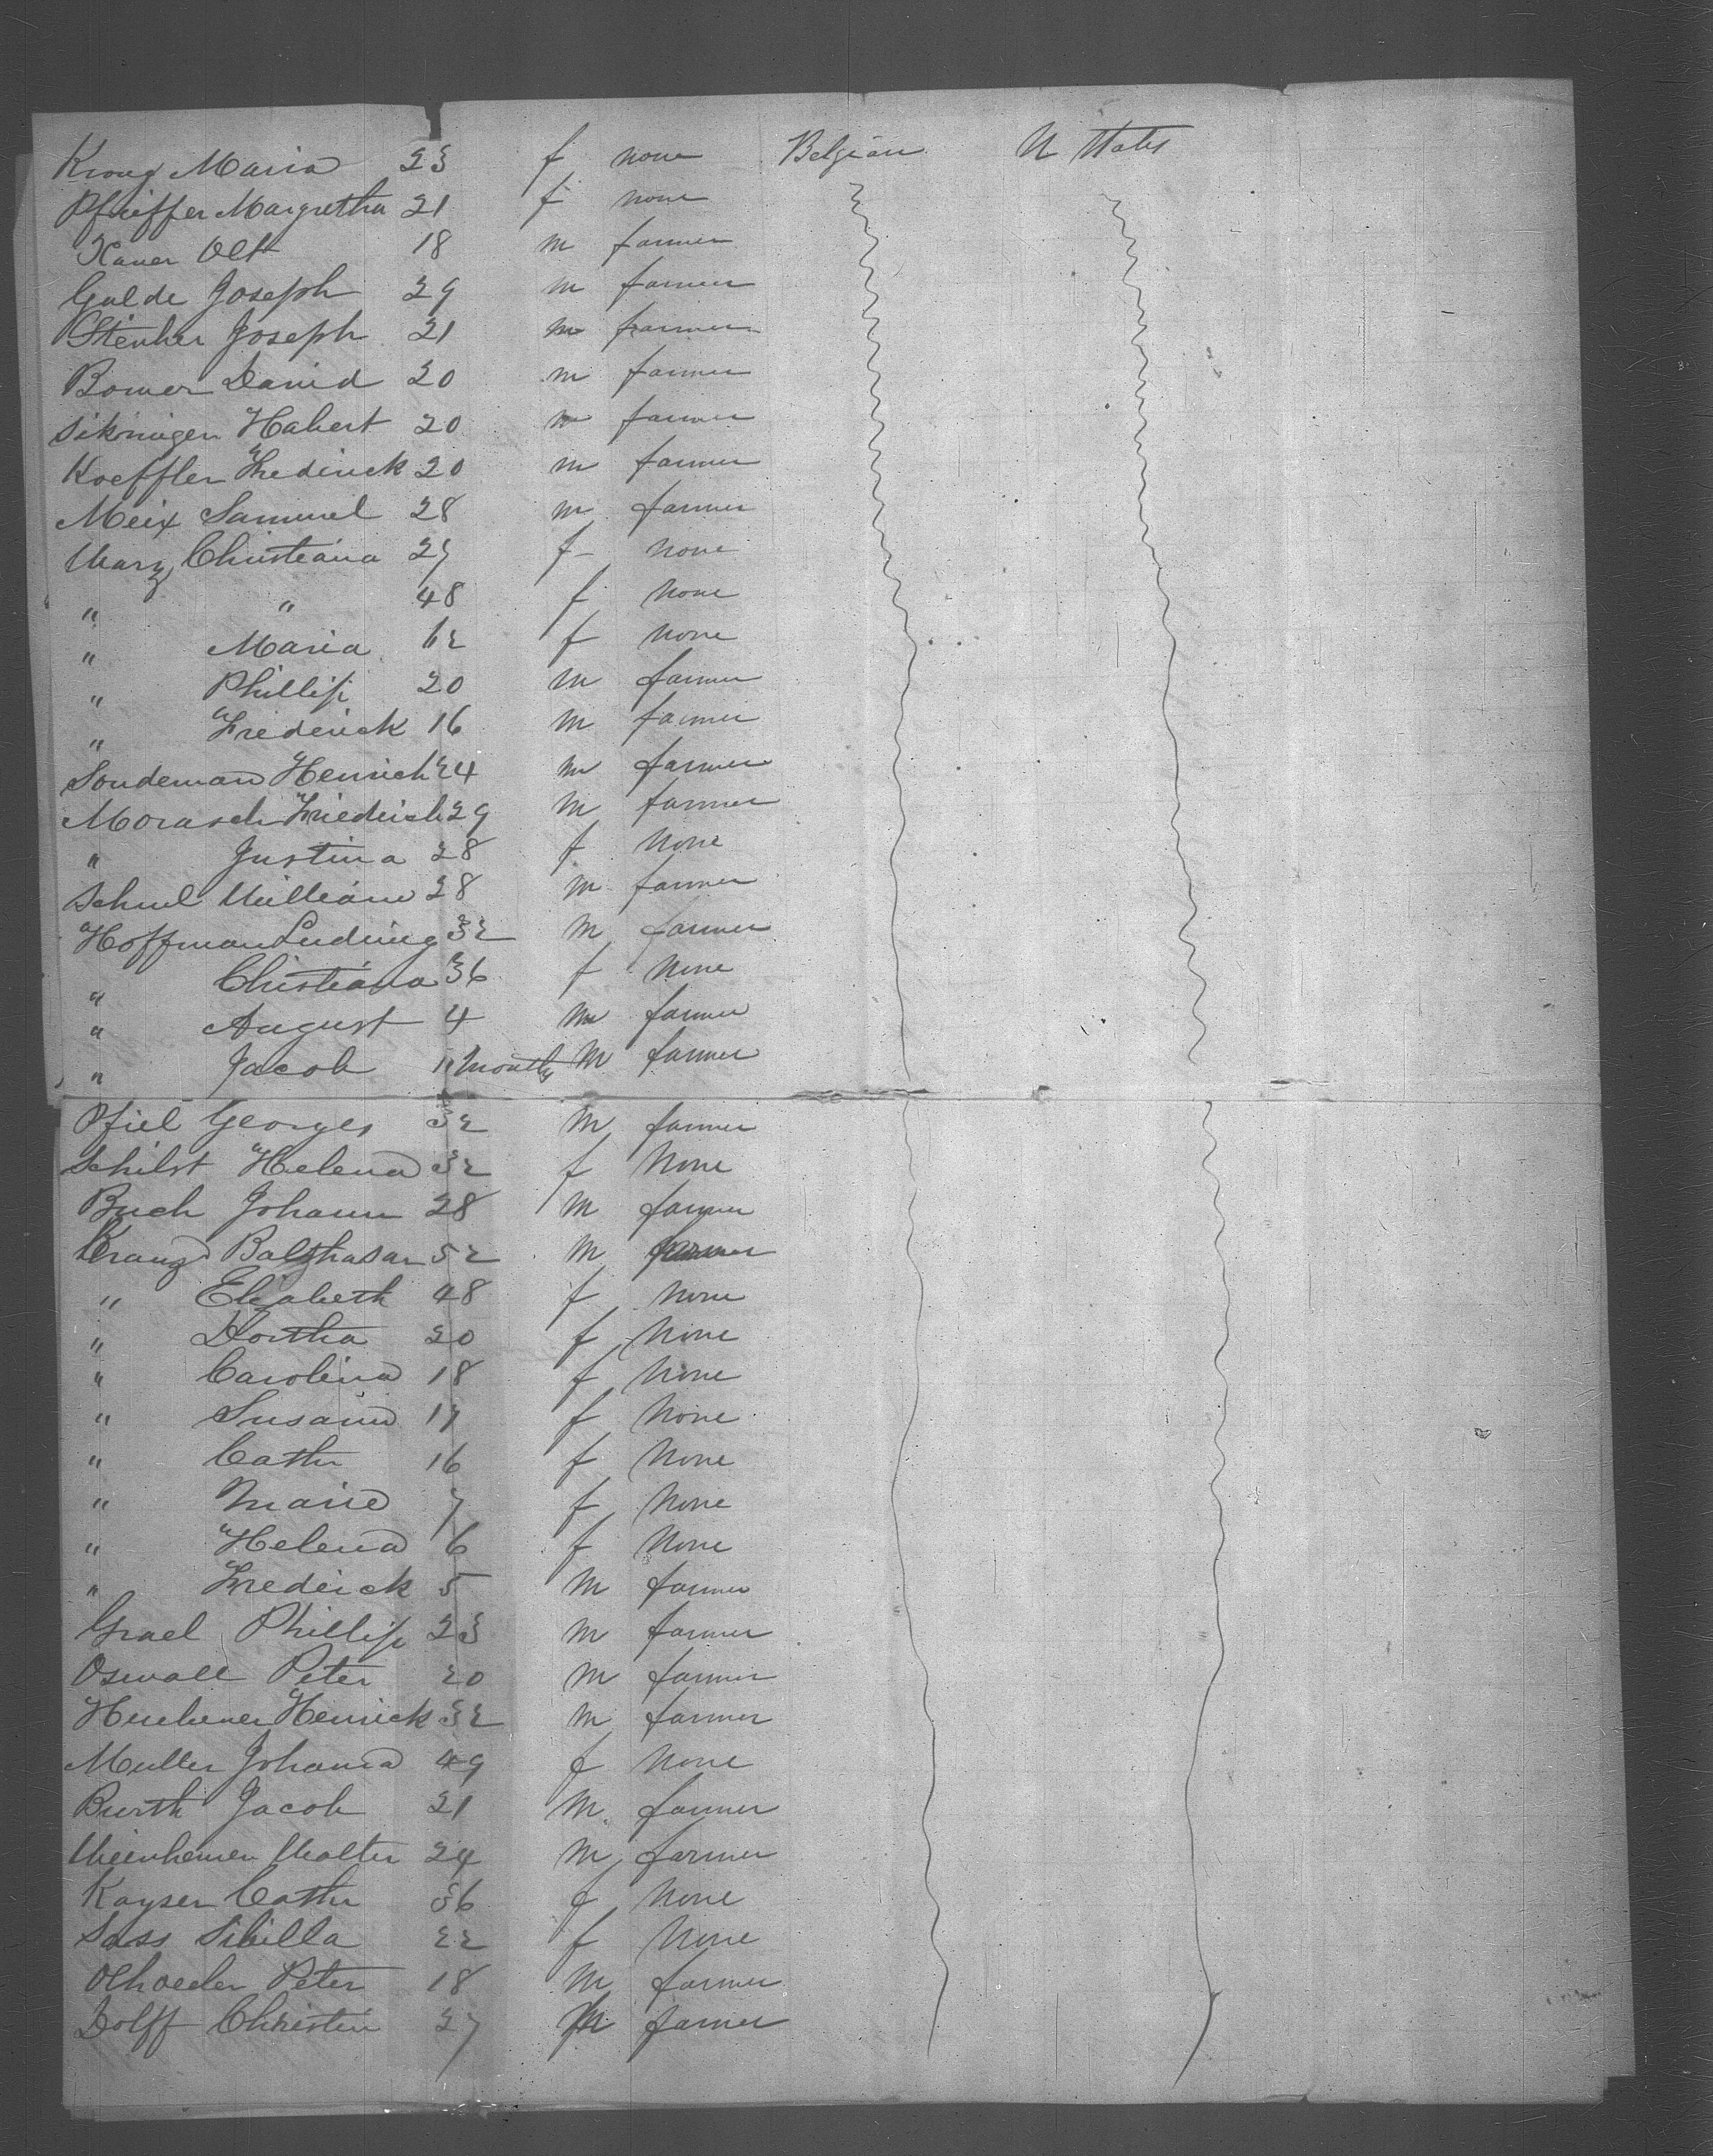 Krong Maria 23 f none Belgian U States
Pfeiffer Margretha 21 f none
Xaver Olt 18 m farmer
Gulde Joseph 29 m farmer
Stenher Joseph 21 m farmer
Bomer David 20 m farmer
Sikningen Habert 20 m farmer
Koeffler Frederick 20 m farmer
Meix Samuel 28 m farmer
Marz Christiana 27 f none
" " 48 f none
" Maria 12 f none
" Phillip 20 m farmer
" Frederick 16 m farmer
Sondeman Henrich 24 m farmer
Morasch Friedrich 29 m farmer
" Justina 28 f none
Schul William 28 m farmer
Hoffman Ludwig 32 m farmer
" Christiana 36 f none
" August 4 m farmer
" Jacob 11 months m farmer
Pfiel Georges 32 m farmer
Schilst Helena 32 f none
Buch Johann 28 m farmer
Kranz Balthasar 52 m farmer
" Elizabeth 48 f none
" Dortha 20 f none
" Carolina 18 f none
" Susanna 17 f none
" Cathr 16 f none
" Maria 7 f none
" Helena 6 f none
" Frederick 5 m farmer
Grael Phillip 23 m farmer
Oswall Peter 20 m farmer
Henrick 32 m farmer
Muller Johanna 49 f none
Burth Jacob 21 m farmer
Walter 24 m farmer
Kayser Cathr 36 f none
Sass Sibilla 22 f none
Peter 18 m farmer
Dolff Christin 27 m farmer